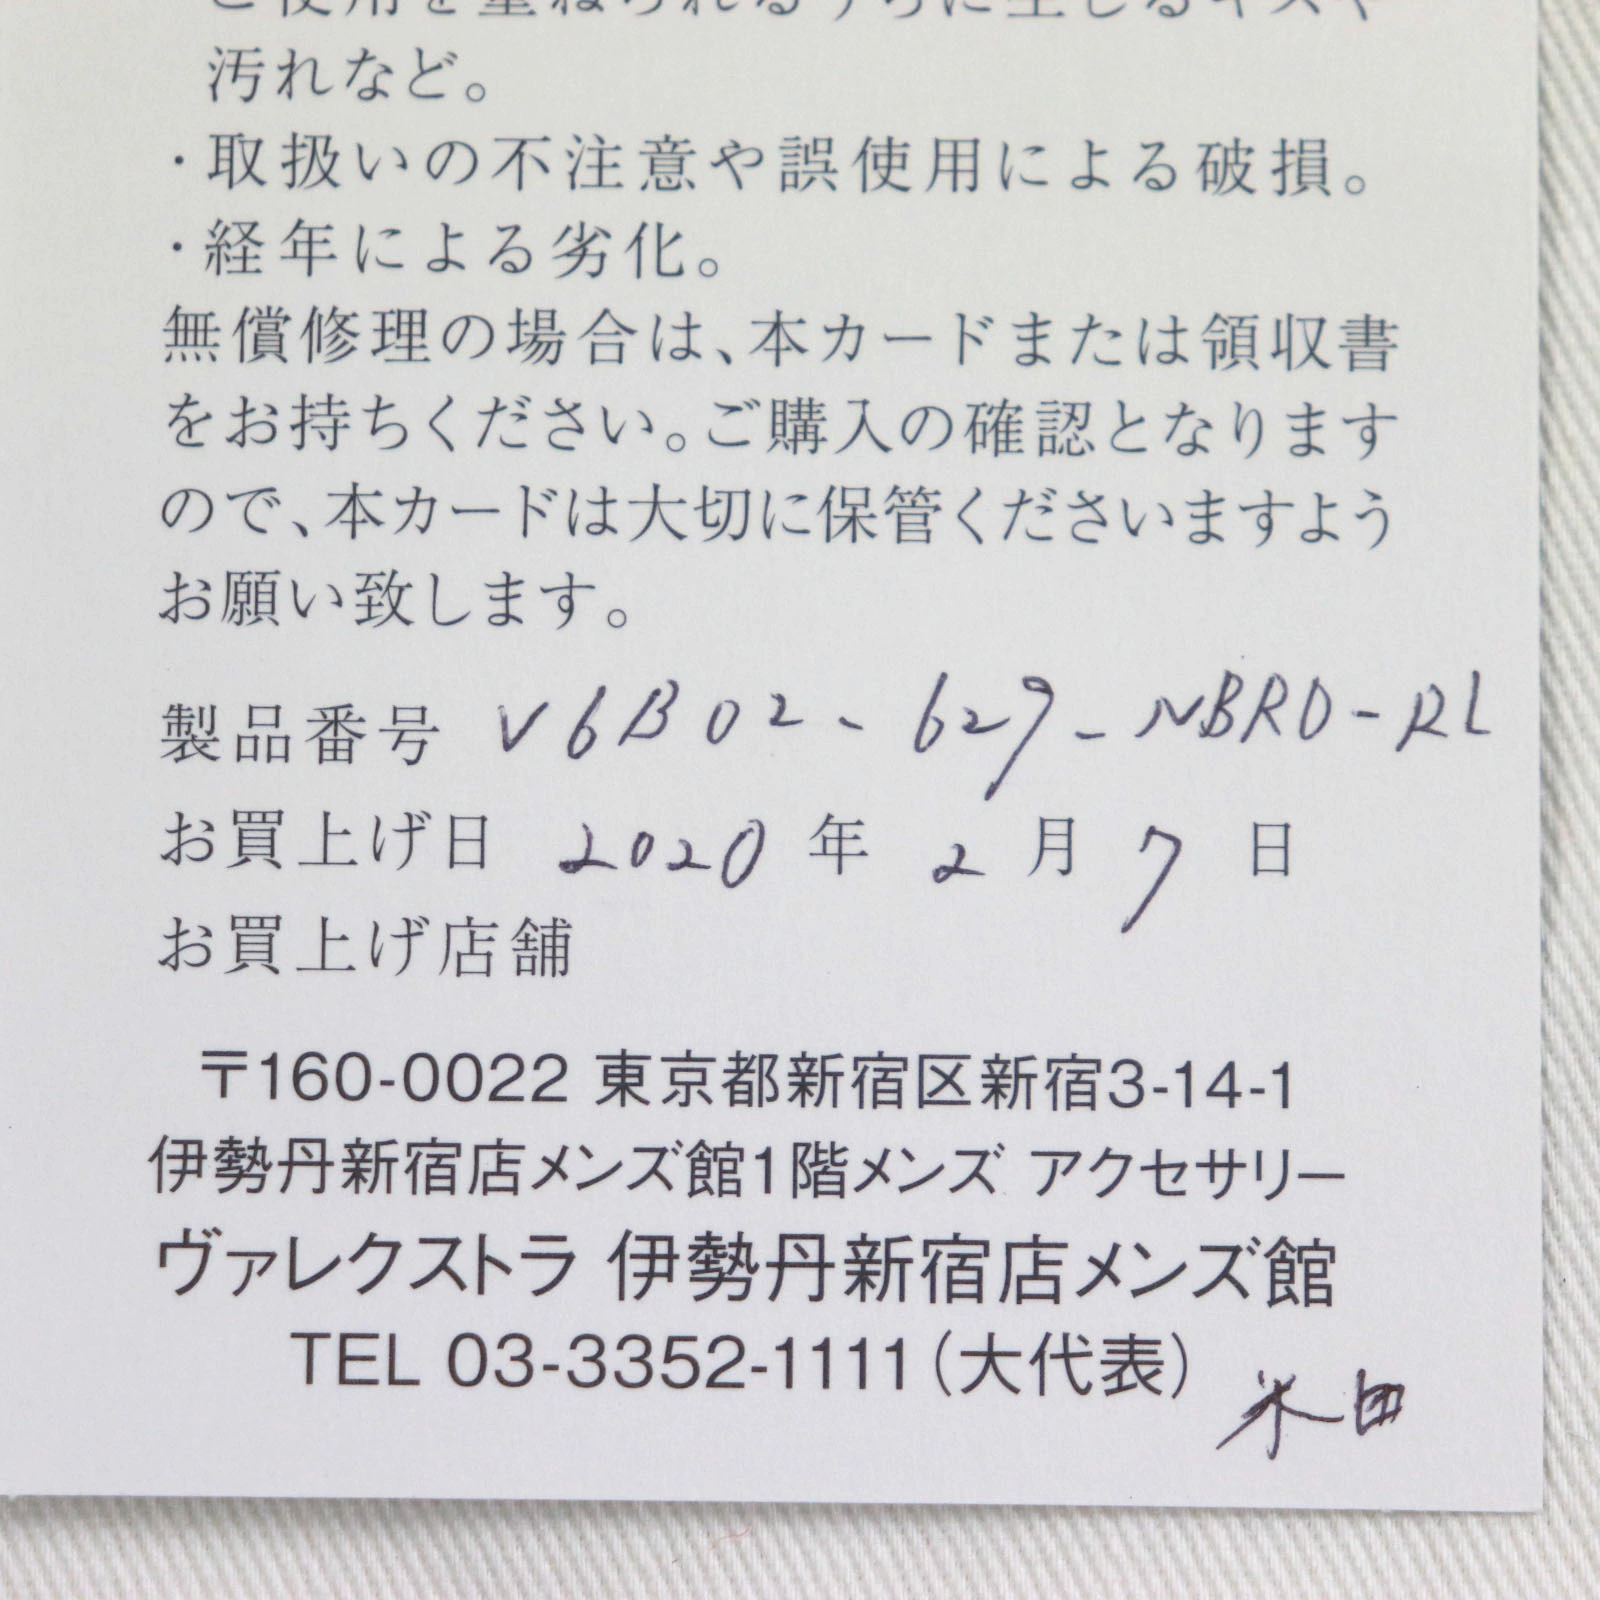 ご使用を重ねられるうちに生じるキズや
汚れなど。
・取扱いの不注意や誤使用による破損。
・経年による劣化。
無償修理の場合は、本カードまたは領収書
をお持ちください。ご購入の確認となります
ので、本カードは大切に保管くださいますよう
お願い致します。
製品番号 V6B02-627-NBRO-RL
お買上げ日 2020 年 2 月 7 日
お買上げ店舗
〒160-0022 東京都新宿区新宿3-14-1
伊勢丹新宿店メンズ館1階メンズ アクセサリー
ヴァレクストラ 伊勢丹新宿店メンズ館
TEL 03-3352-1111（大代表）
米田